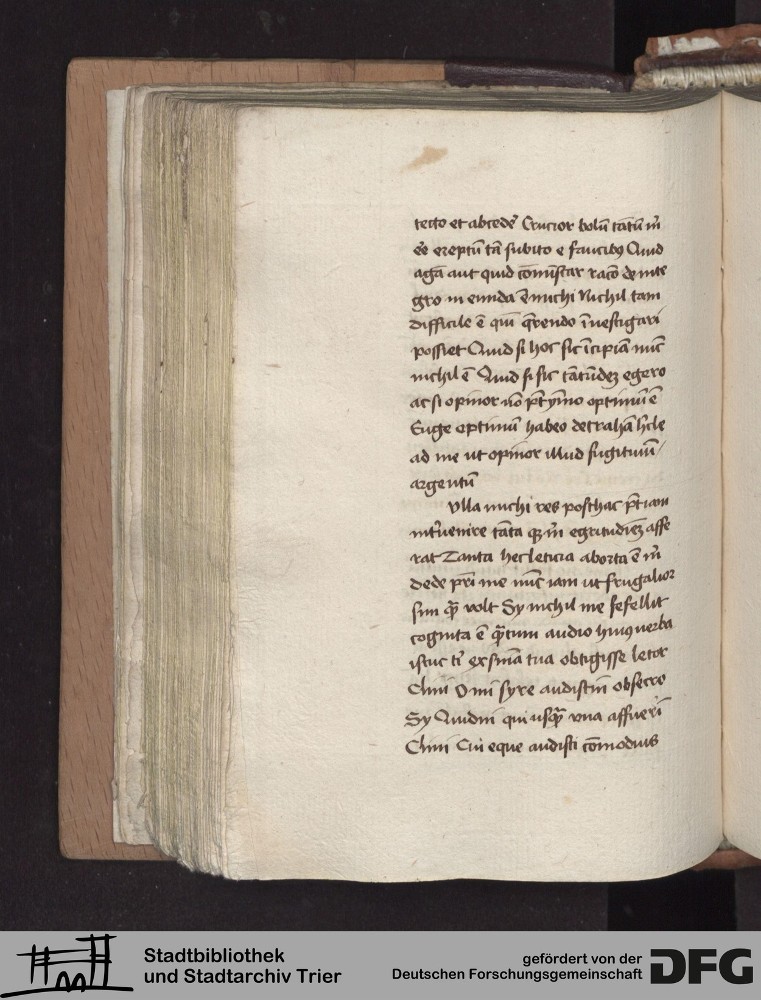 tecto et abcedē Crucior bolū tātū m̄
ēē ereptū tā subito e faucibꝯ Quid
agā aut quid cōminiscar racō de inte
gro in eunda ē michi Nichil tam
difficile ē qui q̄rendo īuestigari
possiet Quid si hoc sic īcipiā nūc
nichil ē Quid si sic tātūdeꝫ egero
ac si opinor nō p̄t ymo optimū ē
Euge optimū habeo detrahā hͨle
ad me ut opinor illud fugitiuū /
argentū
Ulla michi res posthac p̄t iam
intͬuenire tāta qͣꝫ m̄ egritudinē affe
rat Tanta hec leticia aborta ē m̄
dede pr̄i me nūc iam ut frugalior
sim qͣꝫ volt Sy nichil me fefellit
cognita ē qͣꝫtum audio huiꝯ uerba
istuc tͥ ex sn̄īa tua obtigisse letor
Clini O mi syre audistin obsecro
Sy Quidni qui usqꝫ una affueri
Clini Cui eque audisti cōmodius
Stadtbibliothek
und Stadtarchiv Trier
gefördert von der
Deutschen Forschungsgemeinschaft
DFG